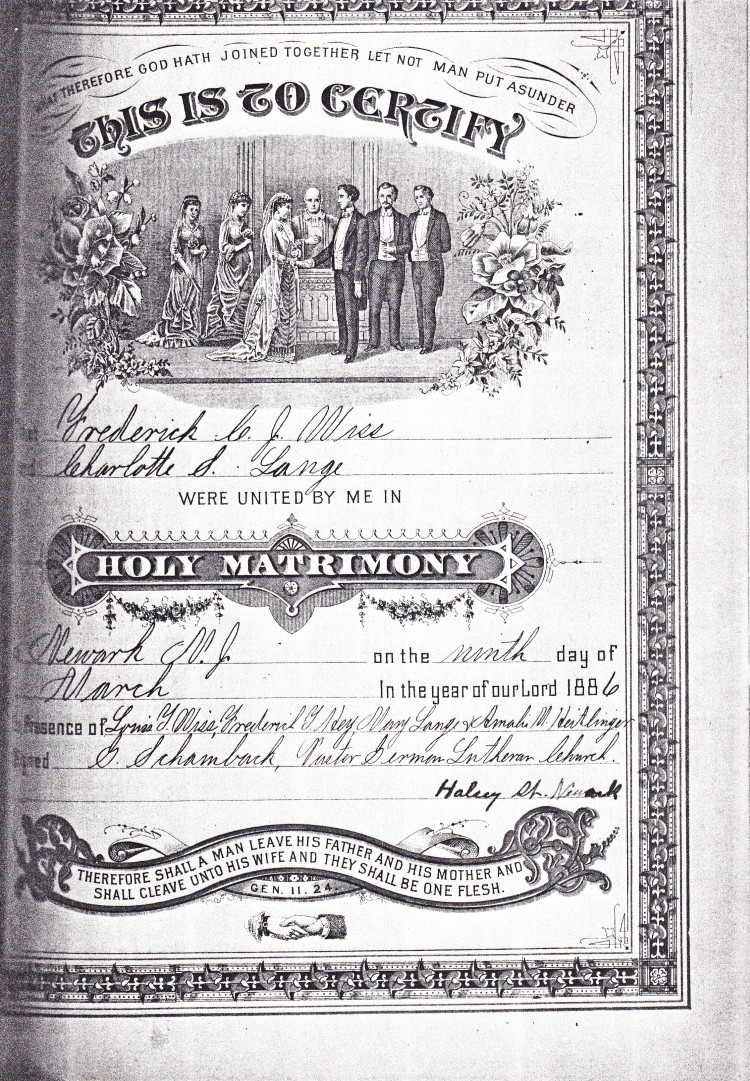 THEREFORE GOD HATH JOINED TOGETHER LET NOT MAN PUT ASUNDER
THIS IS TO CERTIFY
Frederick C. J. Wiss
Charlotte S. Lange
WERE UNITED BY ME IN
HOLY MATRIMONY
Newark N. J. on the ninth day of
March In the year of our Lord 1886
Presence of Louis T. Wiss, Frederick Hey Mary Lange & Amalie
Schamback, Pastor German Lutheran Church.
Halsey St. Newark
THEREFORE SHALL A MAN LEAVE HIS FATHER AND HIS MOTHER AND
SHALL CLEAVE UNTO HIS WIFE AND THEY SHALL BE ONE FLESH.
GEN. 11. 24.